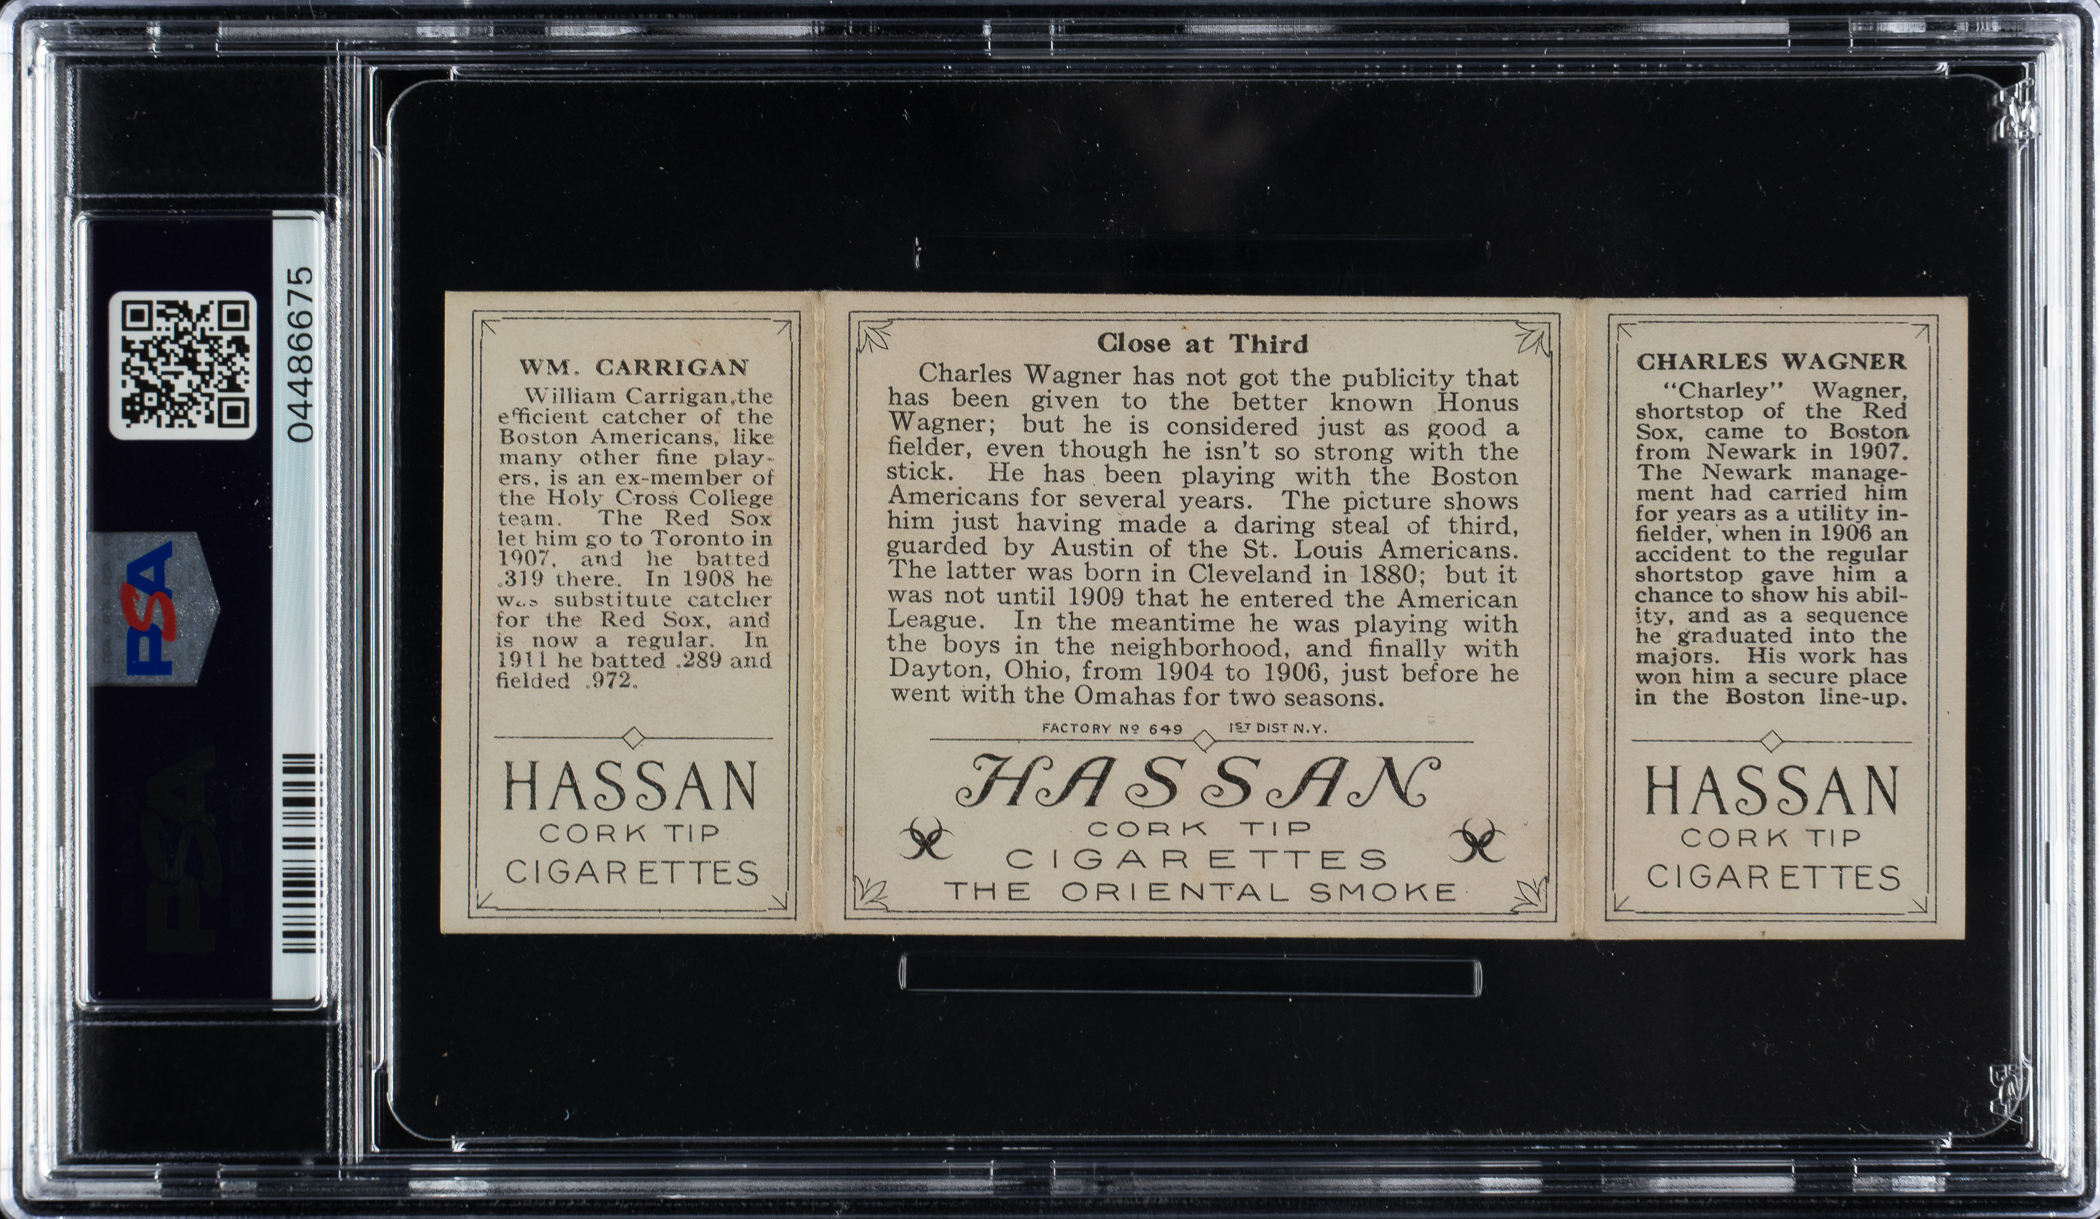 04486675
PSA
WM. CARRIGAN
William Carrigan, the
efficient catcher of the
Boston Americans, like
many other fine play-
ers, is an ex-member of
the Holy Cross College
team. The Red Sox
let him go to Toronto in
1907, and he batted
.319 there. In 1908 he
was substitute catcher
for the Red Sox, and
is now a regular. In
1911 he batted .289 and
fielded .972.
HASSAN
CORK TIP
CIGARETTES
Close at Third
Charles Wagner has not got the publicity that
has been given to the better known Honus
Wagner; but he is considered just as good a
fielder, even though he isn't so strong with the
stick. He has been playing with the Boston
Americans for several years. The picture shows
him just having made a daring steal of third,
guarded by Austin of the St. Louis Americans.
The latter was born in Cleveland in 1880; but it
was not until 1909 that he entered the American
League. In the meantime he was playing with
the boys in the neighborhood, and finally with
Dayton, Ohio, from 1904 to 1906, just before he
went with the Omahas for two seasons.
FACTORY Nº 649 1ST DIST N.Y.
HASSAN
CORK TIP
CIGARETTES
THE ORIENTAL SMOKE
CHARLES WAGNER
"Charley" Wagner,
shortstop of the Red
Sox, came to Boston
from Newark in 1907.
The Newark manage-
ment had carried him
for years as a utility in-
fielder, when in 1906 an
accident to the regular
shortstop gave him a
chance to show his abil-
ity, and as a sequence
he graduated into the
majors. His work has
won him a secure place
in the Boston line-up.
HASSAN
CORK TIP
CIGARETTES